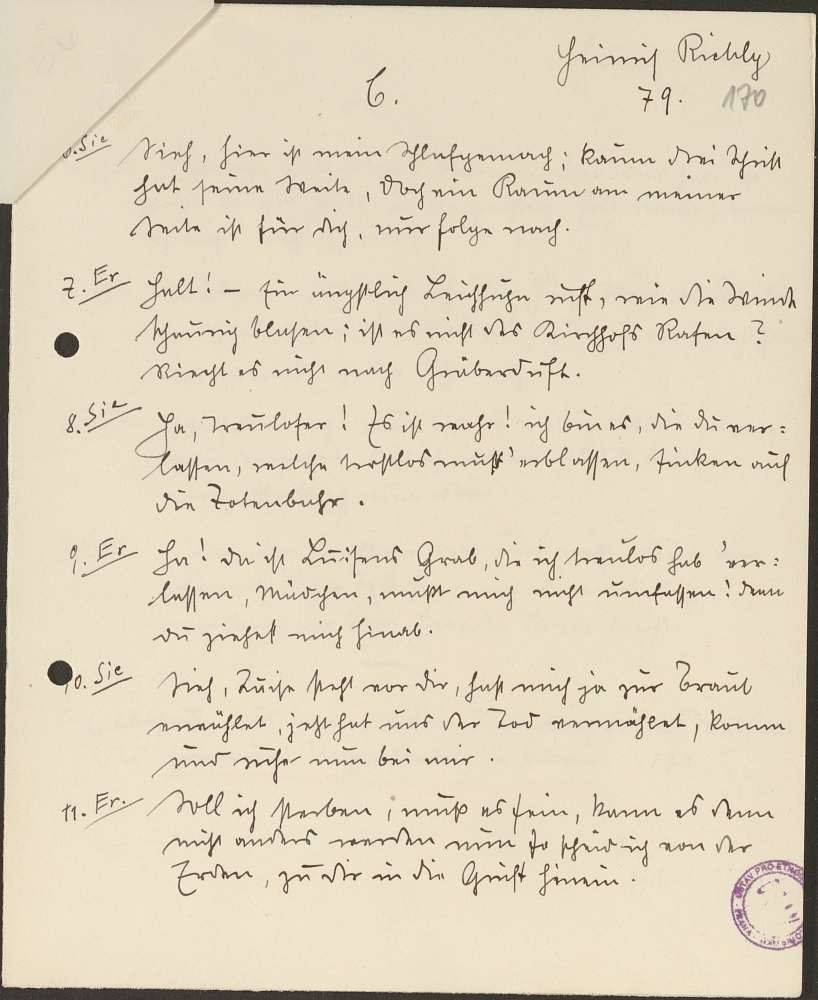 Heinrich Richly
6.
79. 170
6. Sie Sieh, hier ist mein Schlafgemach; kaum drei Schritt
hat seine Weite, doch ein Raum an meiner
Seite ist für dich, nur folge nach.
7. Er Halt! – Ein ängstlich Leichhuhn ruft, wie die Winde
schaurig blasen; ist es nicht des Kirchhofs Rasen?
Riecht es nicht nach Gräberduft.
8. Sie Ja, Treuloser! Es ist wahr! ich bin es, die du ver=
lassen, welche trostlos mußt' erblassen, sinken auf
die Totenbahr.
9. Er Ha! da ist Luisens Grab, die ich treulos hab' ver=
lassen, Mädchen, mußt mich nicht umfassen! denn
du ziehest mich hinab.
10. Sie Sieh, Luise steht vor dir, hast mich ja zur Braut
erwählet, jetzt hat uns der Tod vermählet, komm
und ruhe nun bei mir.
11. Er. Soll ich sterben, muß es sein, kann es denn
nicht anders werden nun so scheid ich von der
Erden, zu dir in die Gruft hinein.